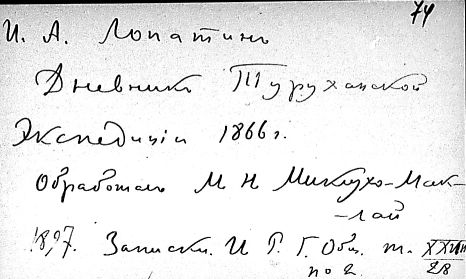 74
И. А. Лопатинъ
Дневникъ Туруханской
Экспедиціи 1866 г.
Обработалъ М Н Миклухо-Мак-
-лай
1897. Записки. И Р. Г. Общ. т. XXVIII
no 2. 28